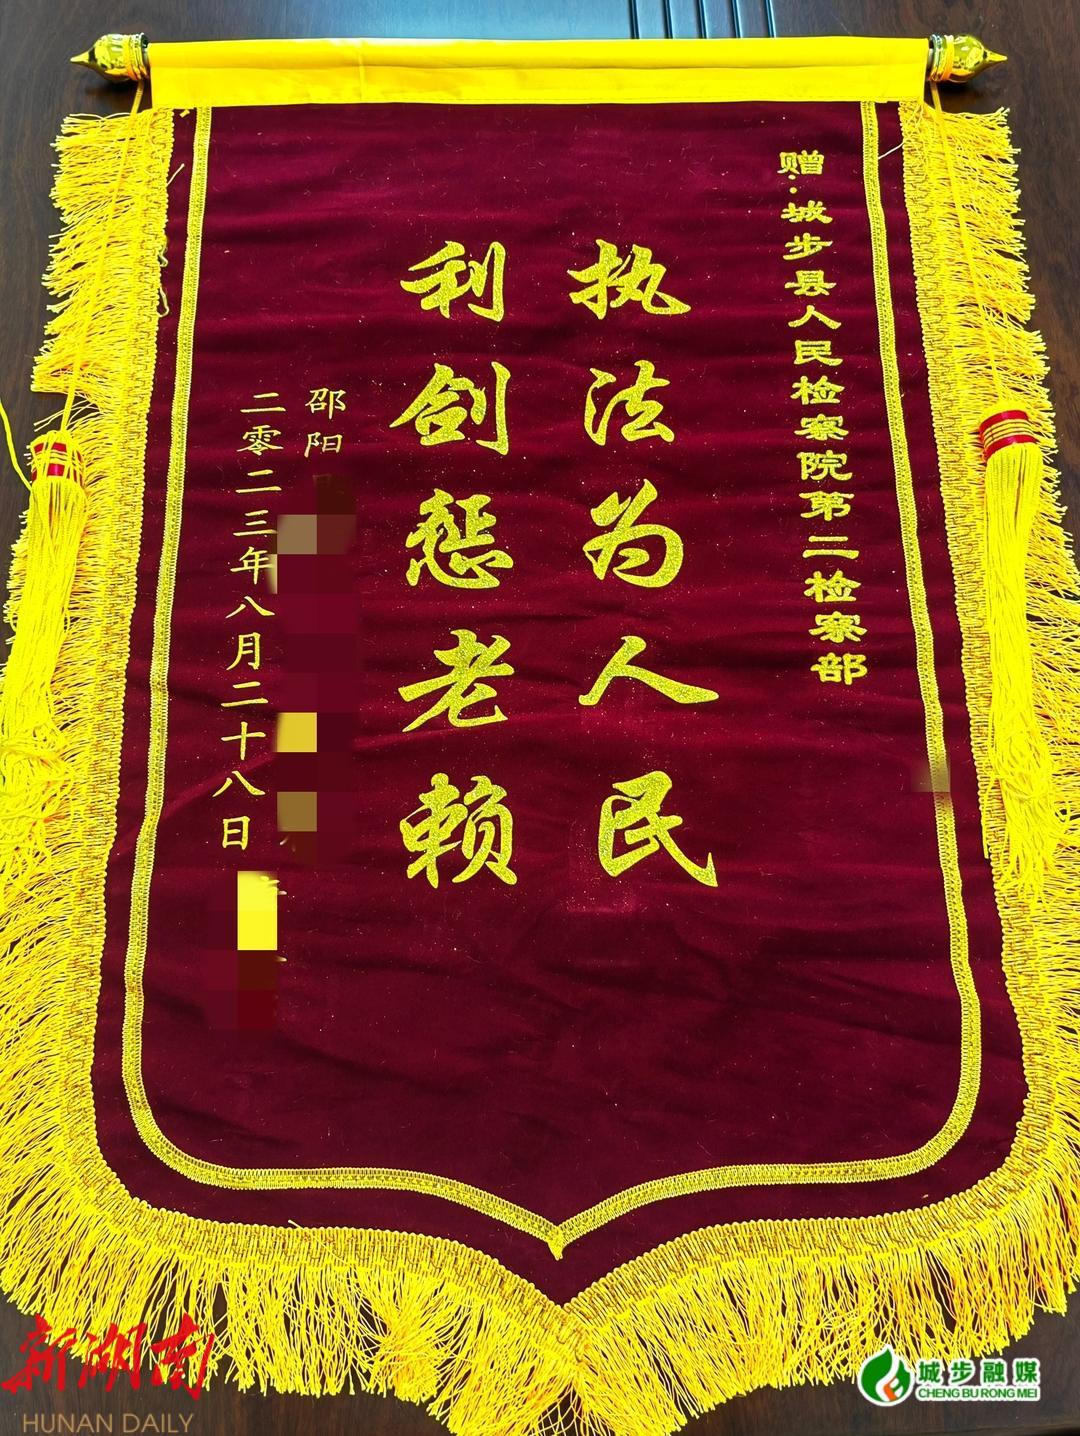 赠:城步县人民检察院第二检察部
执法为人民
利剑惩老赖
邵阳
二零二三年八月二十八日
新湖南
HUNAN DAILY
城步融媒
CHENG BU RONG MEI